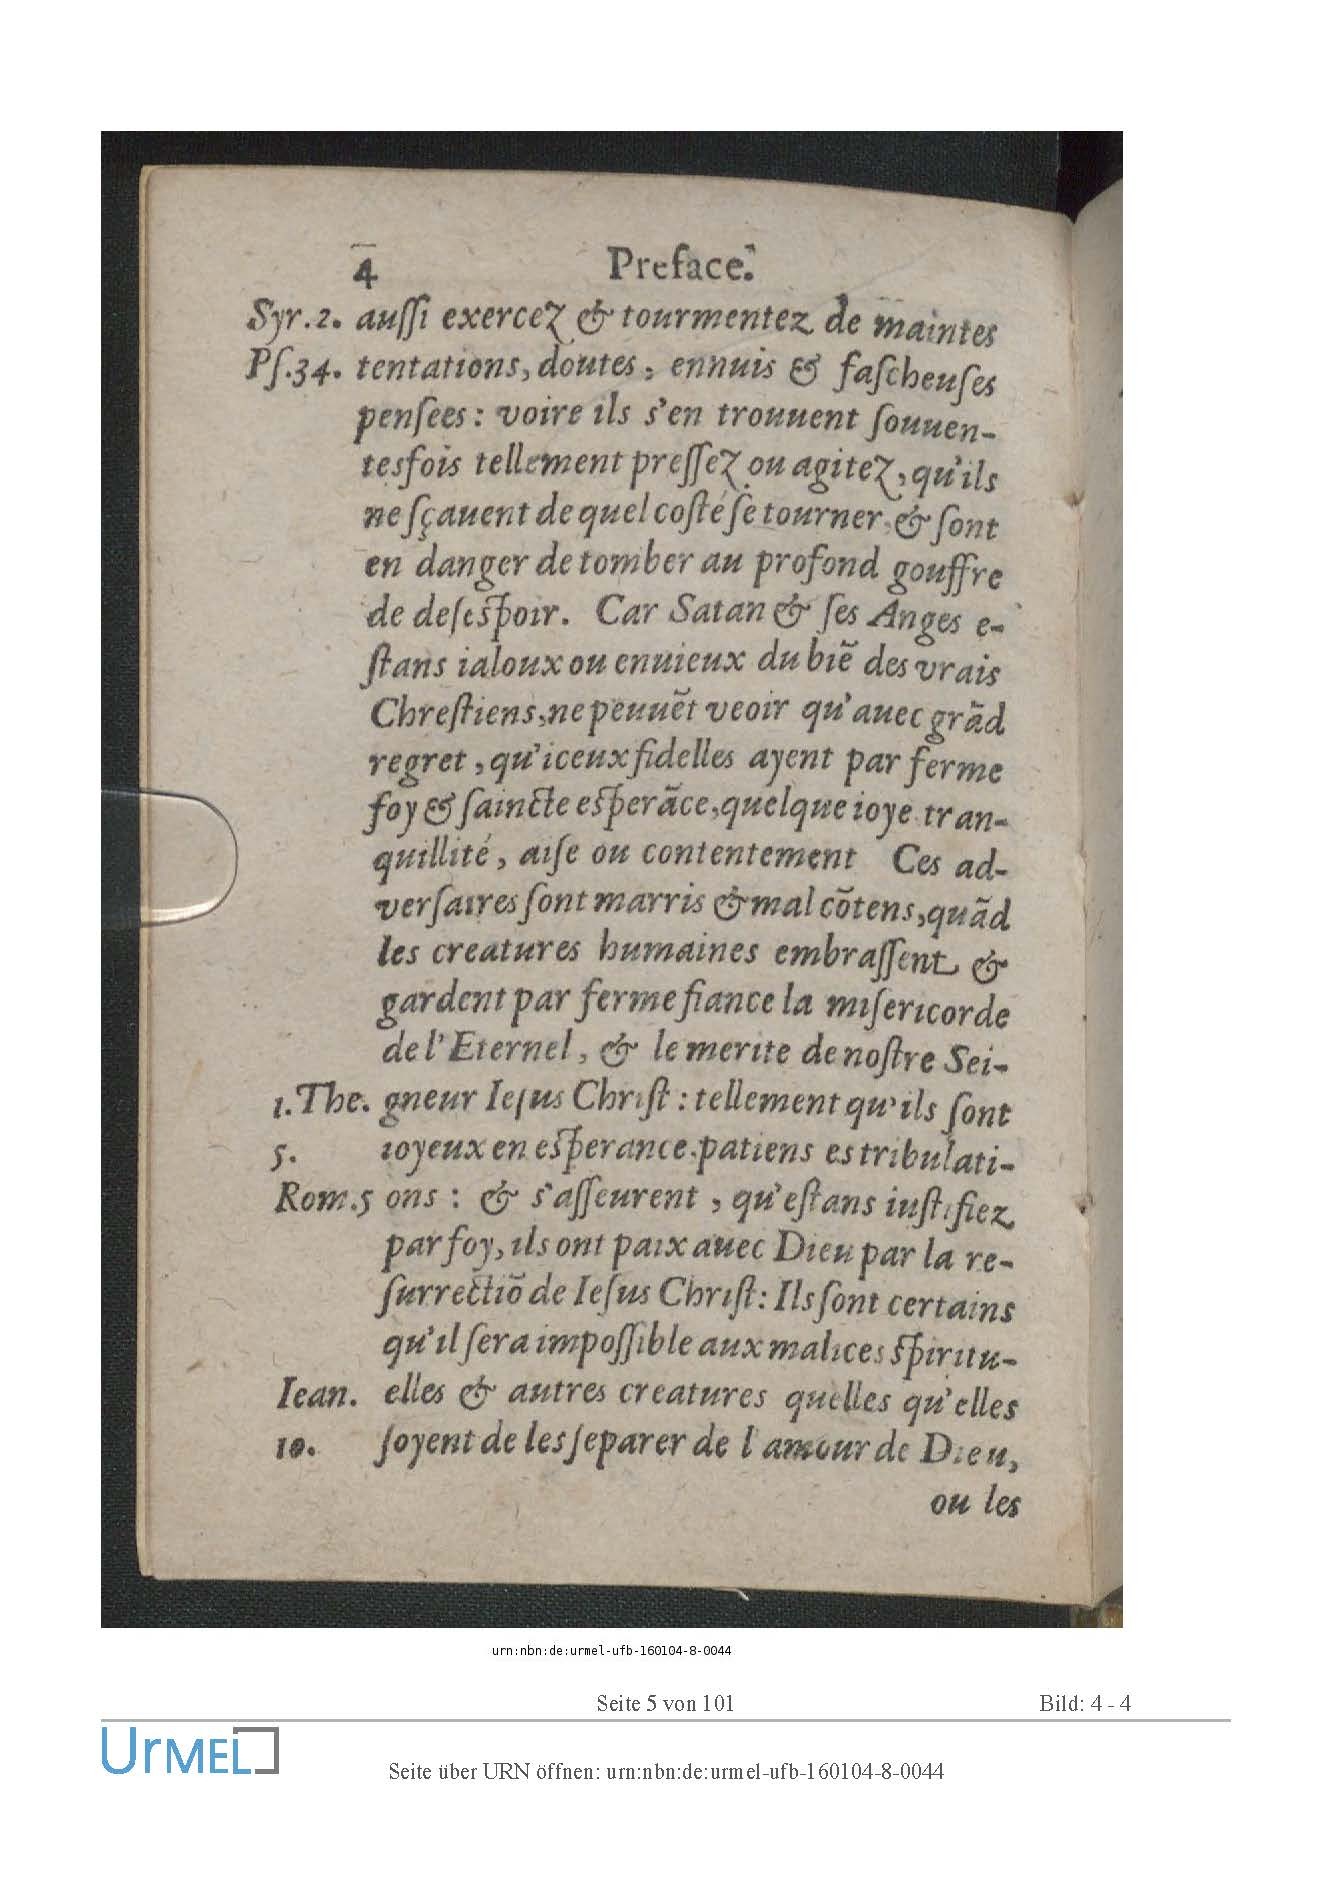 4 Preface.
Syr.2. auſſi exercez & tourmentez de maintes
Pſ.34. tentations, doutes, ennuis & faſcheuſes
penſees: voire ils s'en trouuent ſouuen-
tesfois tellement preſſez ou agitez, qu'ils
ne ſçauent de quel coſté ſe tourner, & ſont
en danger de tomber au profond gouffre
de deſeſpoir. Car Satan & ſes Anges e-
ſtans ialoux ou enuieux du biẽ des vrais
Chreſtiens, ne peuuẽt veoir qu'auec grãd
regret, qu'iceux fidelles ayent par ferme
foy & ſaincte eſperãce, quelque ioye tran-
quillité, aiſe ou contentement Ces ad-
verſaires ſont marris & mal cõtens, quãd
les creatures humaines embraſſent &
gardent par ferme fiance la miſericorde
de l'Eternel, & le merite de noſtre Sei-
1.The. gneur Ieſus Chriſt: tellement qu'ils ſont
5. ioyeux en eſperance. patiens es tribulati-
Rom.5 ons: & s'aſſeurent, qu'eſtans iuſtifiez
par foy, ils ont paix auec Dieu par la re-
ſurrectiõ de Ieſus Chriſt: Ils ſont certains
qu'il ſera impoſſible aux malices ſpiritu-
Iean. elles & autres creatures quelles qu'elles
10. ſoyent de les ſeparer de l'amour de Dieu,
ou les
urn:nbn:de:urmel-ufb-160104-8-0044
Seite 5 von 101 Bild: 4 - 4
UrMEL
Seite über URN öffnen: urn:nbn:de:urmel-ufb-160104-8-0044